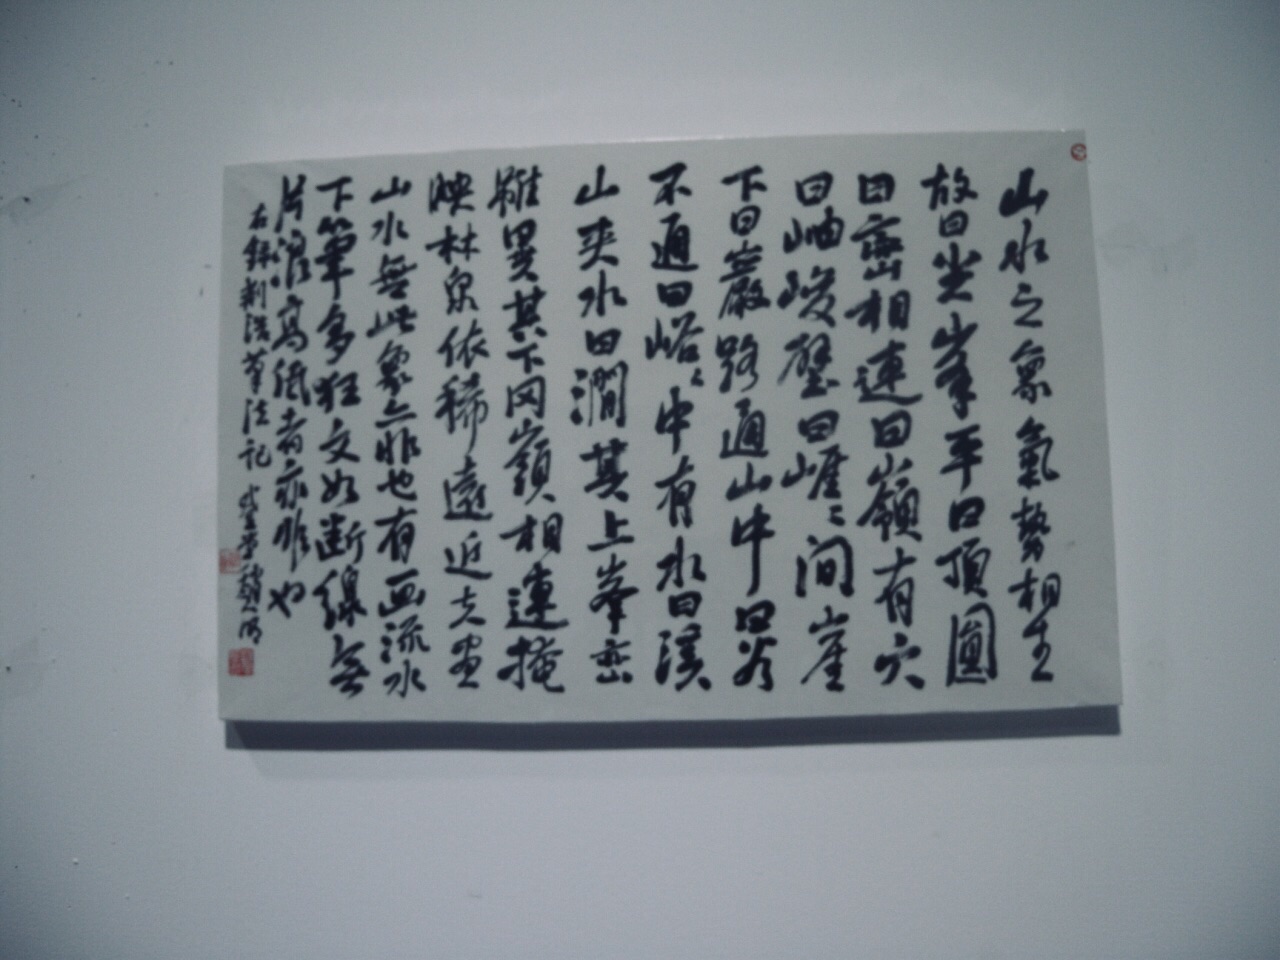 山水之象氣勢相生
故曰尖峯平曰頂圓
曰巒相連曰嶺有穴
曰岫峻壁曰崖〻間崖
下曰巖路通山中曰谷
不通曰峪〻中有水曰溪
山夾水曰澗其上峯巒
雖異其下冈嶺相連掩
映林泉依稀遠近夫畫
山水無此象亦非也有画流水
下筆多狂文如断線無
片浪高低者亦非也
右錄荆浩筆法記